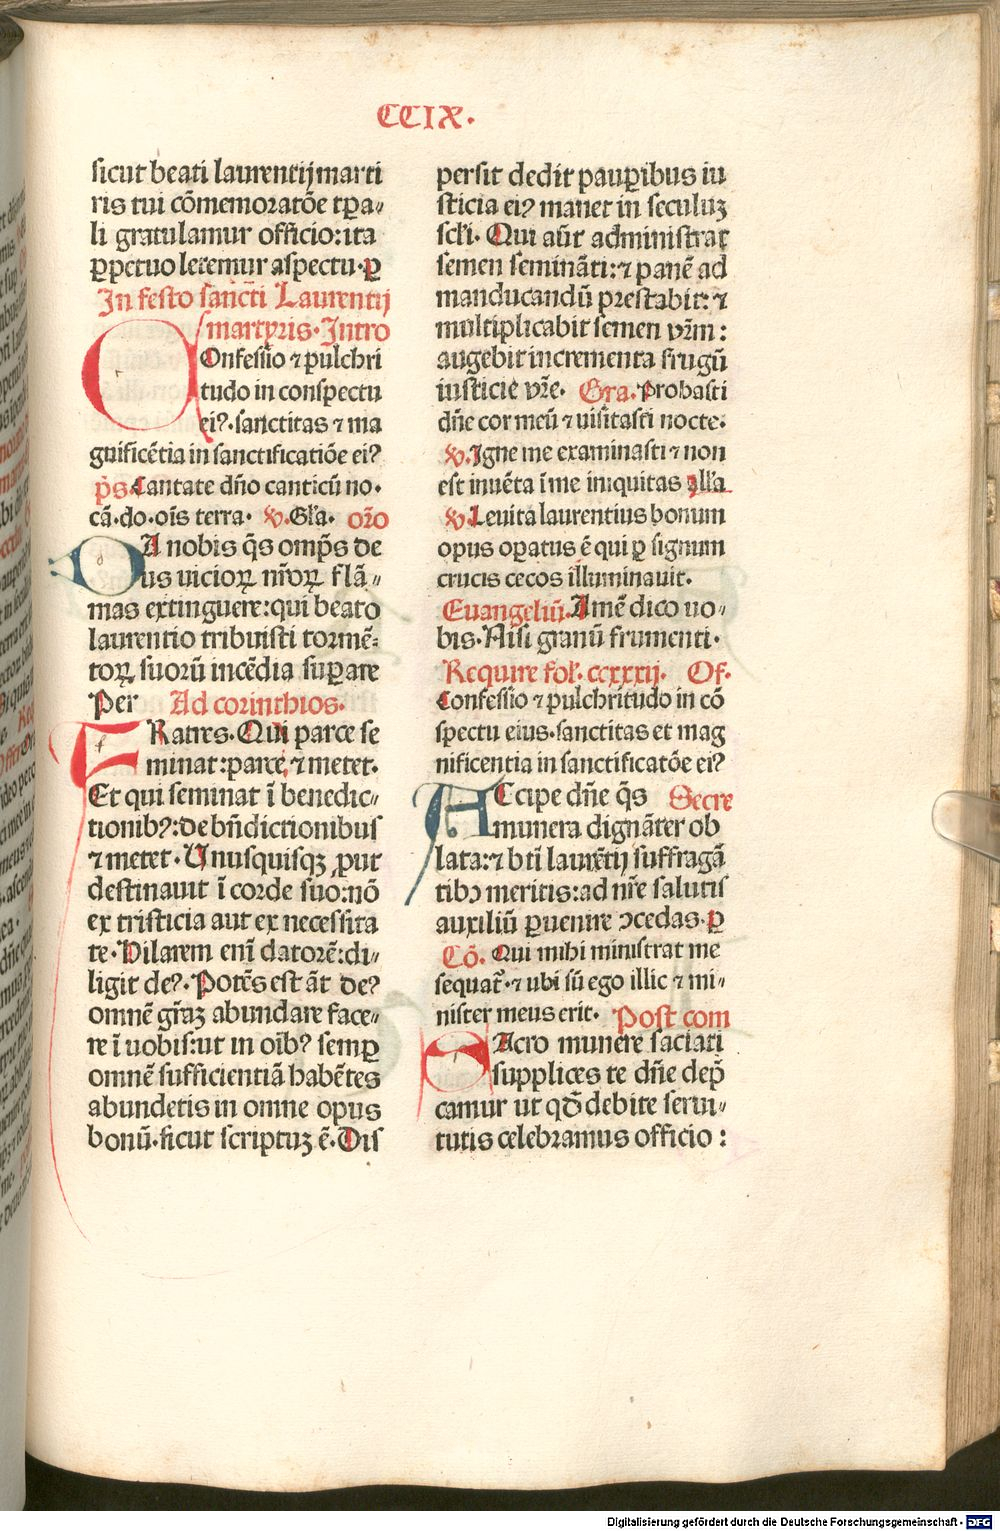 CCIX.
sicut beati laurentij marti
ris tui cōmemoratōe tꝑa⸗
li gratulamur officio:ita
ꝑpetuo letemur aspectu.ꝑ
In festo sancti Laurentij
martyris.Intro
COnfessio ⁊ pulchri
tudo in conspectu
eiꝰ.sanctitas ⁊ ma
gnificētia in sanctificatiōe eiꝰ
p̄s.Cantate dn̄o canticū no.
cā.do.oīs terra. ℣.Gl̄a. or̄o
DA nobis q̄s omp̄s de
us vicioꝝ nr̄oꝝ flā⸗
mas extinguere:qui beato
laurentio tribuisti tormē⸗
toꝝ suorū incēdia suꝑare
Per Ad corinthios.
FRatres.Qui parce se
minat:parce ⁊ metet.
Et qui seminat ī benedic⸗
tionibꝰ:de bn̄dictionibus
⁊ metet.Unusquisqꝫ ꝓut
destinauit ī corde suo:nō
ex tristicia aut ex necessita
te.Hilarem enī datorē:di⸗
ligit deꝰ.Potēs est āt deꝰ
omnē gr̄aꝫ abundare face⸗
re ī uobis:ut in oībꝰ semꝑ
omnē sufficientiā habētes
abundetis in omne opus
bonū.sicut scriptuꝫ ē.Dis
persit dedit pauꝑibus iu
sticia eiꝰ manet in seculuꝫ
scl̄i. Qui aūt administrat
semen semināti:⁊ panē ad
manducandū prestabit:⁊
multiplicabit semen vr̄m:
augebit incrementa frugū
iusticie vr̄e. Gra.Probasti
dn̄e cor meū ⁊ uisitasti nocte.
℣.Igne me examinasti ⁊ non
est inuēta ī me iniquitas all̄a
℣.Leuita laurentius bonum
opus oꝑatus ē qui ꝑ signum
crucis cecos illuminauit.
Euangeliū.Amē dico uo⸗
bis.Nisi granū frumenti.
Require fol. ccxxxij. Of.
Confessio ⁊ pulchritudo in cō
spectu eius.sanctitas et mag
nificentia in sanctificatōe eiꝰ
ACcipe dn̄e q̄s Secre
munera dignāter ob
lata:⁊ bt̄i laurētij suffragā
tibꝰ meritis:ad nr̄e salutis
auxiliū ꝑuenire ↄcedas.ꝑ
Cō. Qui mihi ministrat me
sequat᷑.⁊ ubi sū ego illic ⁊ mi⸗
nister meus erit. Post com
SAcro munere saciati
supplices te dn̄e dep̄
camur ut qd̄ debite serui⸗
tutis celebramus officio:
Digitalisierung gefördert durch die Deutsche Forschungsgemeinschaft - DFG